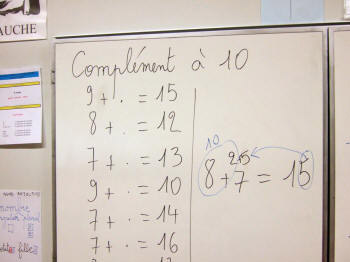 AUCHE
Complément à 10
9 + . = 15
8 + . = 12
7 + . = 13
9 + . = 10
7 + . = 14
7 + . = 16
10
2 5
8 + 7 = 15